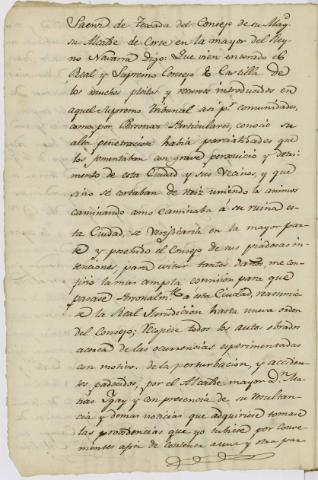 Saenz de Texada del Consejo de su Mag.d
su Alcalde de Corte en la mayor del Rey
no Navarra Digo: Que bien enterado el
Real y Supremo Consejo de Castilla de
los muchos pleitos y recursos introducidos en
aquel Supremo tribunal asi p.r comunidades,
como por Personas Particulares, conocio su
alta penetracion habia parcialidades que
los fomentaban con grave perjuicio y detri
mento de esta Ciudad y sus Vecinos, y que
sino se cortaban de raiz uniendo los animos
caminando como caminaba á su ruina es
ta Ciudad, se verificaria en la mayor par
te y poseido el Consejo de sus piadosas in
tenciones, para evitar tantos daños me con
firio la mas amplia comision para que
pasase á esta Ciudad, reasumie
se la Real Jurisdicion hasta nueva orden
del Consejo; Recogiese todos los autos obrados
acerca de las ocurrencias experimentadas
con motivo de la perturbacion, y acciden
tes padecidos, por el Alcalde mayor D.n Ma
thias Ygay y con presencia de su resultan
cia y demas noticias que adquiriese tomase
las providencias que yo tubiese por conve
nientes afin de contener a una y otra par